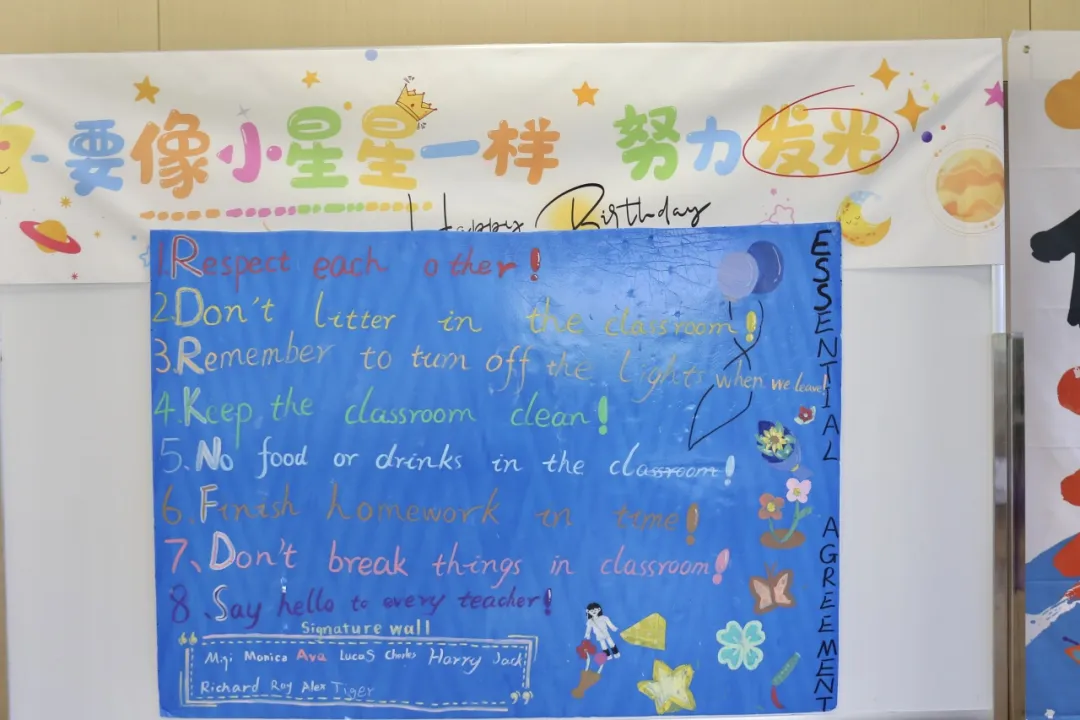 要像小星星一样 努力发光
Happy Birthday
1.Respect each other!
2.Don't litter in the classroom!
3.Remember to turn off the lights when we leave!
4.Keep the classroom clean!
5.No food or drinks in the classroom!
6.Finish homework in time!
7、Don't break things in classroom!
8.Say hello to every teacher!
Signature wall
Miqi Monica Ava Lucas Charles Harry Jack
Richard Roy Alex Tiger
ESSENTIAL AGREEMENT